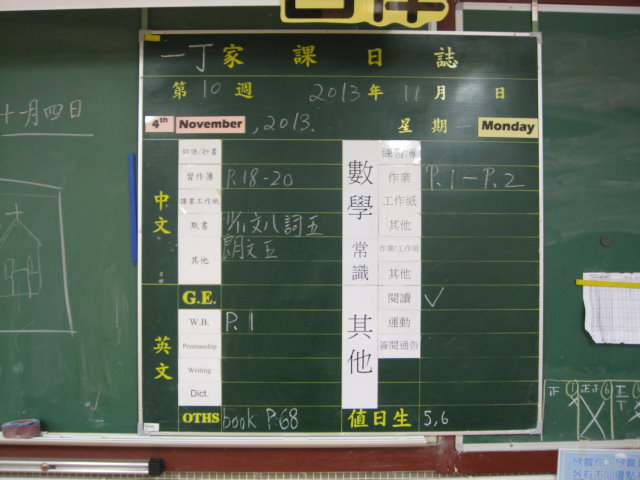 一丁家課日誌
第10週 2013年11月 日
十月四日
4th November, 2013. 星期一 Monday
中文
詞語/抄書
習作簿 P.18-20
課業工作紙
默書
其他 朗文五
數學
練習簿
作業 P.1-P.2
工作紙
其他
常識
作業/工作紙
其他
G.E.
英文
W.B. P.1
Penmanship
Writing
Dict.
OTHS book P.68
其他
閱讀 ✓
運動
簽閱通告
值日生 5,6
正 正正
欣賞你
各有不同優點